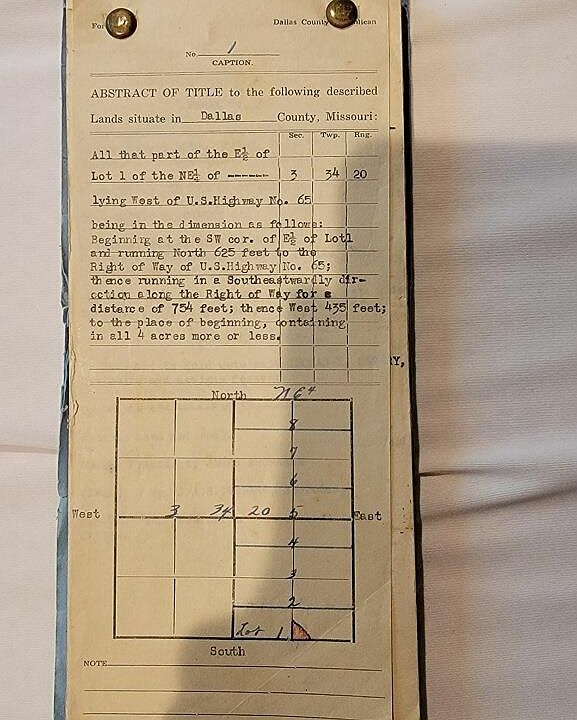 For
Dallas County
No. 1
CAPTION.
ABSTRACT OF TITLE to the following described
Lands situate in Dallas County, Missouri:
Sec. Twp. Rng.
All that part of the E½ of
Lot 1 of the NE¼ of ------ 3 34 20
lying West of U.S.Highway No. 65
being in the dimension as follows:
Beginning at the SW cor. of E½ of Lot1
and running North 625 feet to the
Right of Way of U.S.Highway No. 65;
thence running in a Southeastwardly dir-
ection along the Right of Way for a
distance of 754 feet; thence West 435 feet;
to the place of beginning, containing
in all 4 acres more or less.
RY,
North NE4
8
7
6
West 3 34 20 5 East
4
3
2
Lot 1
South
NOTE